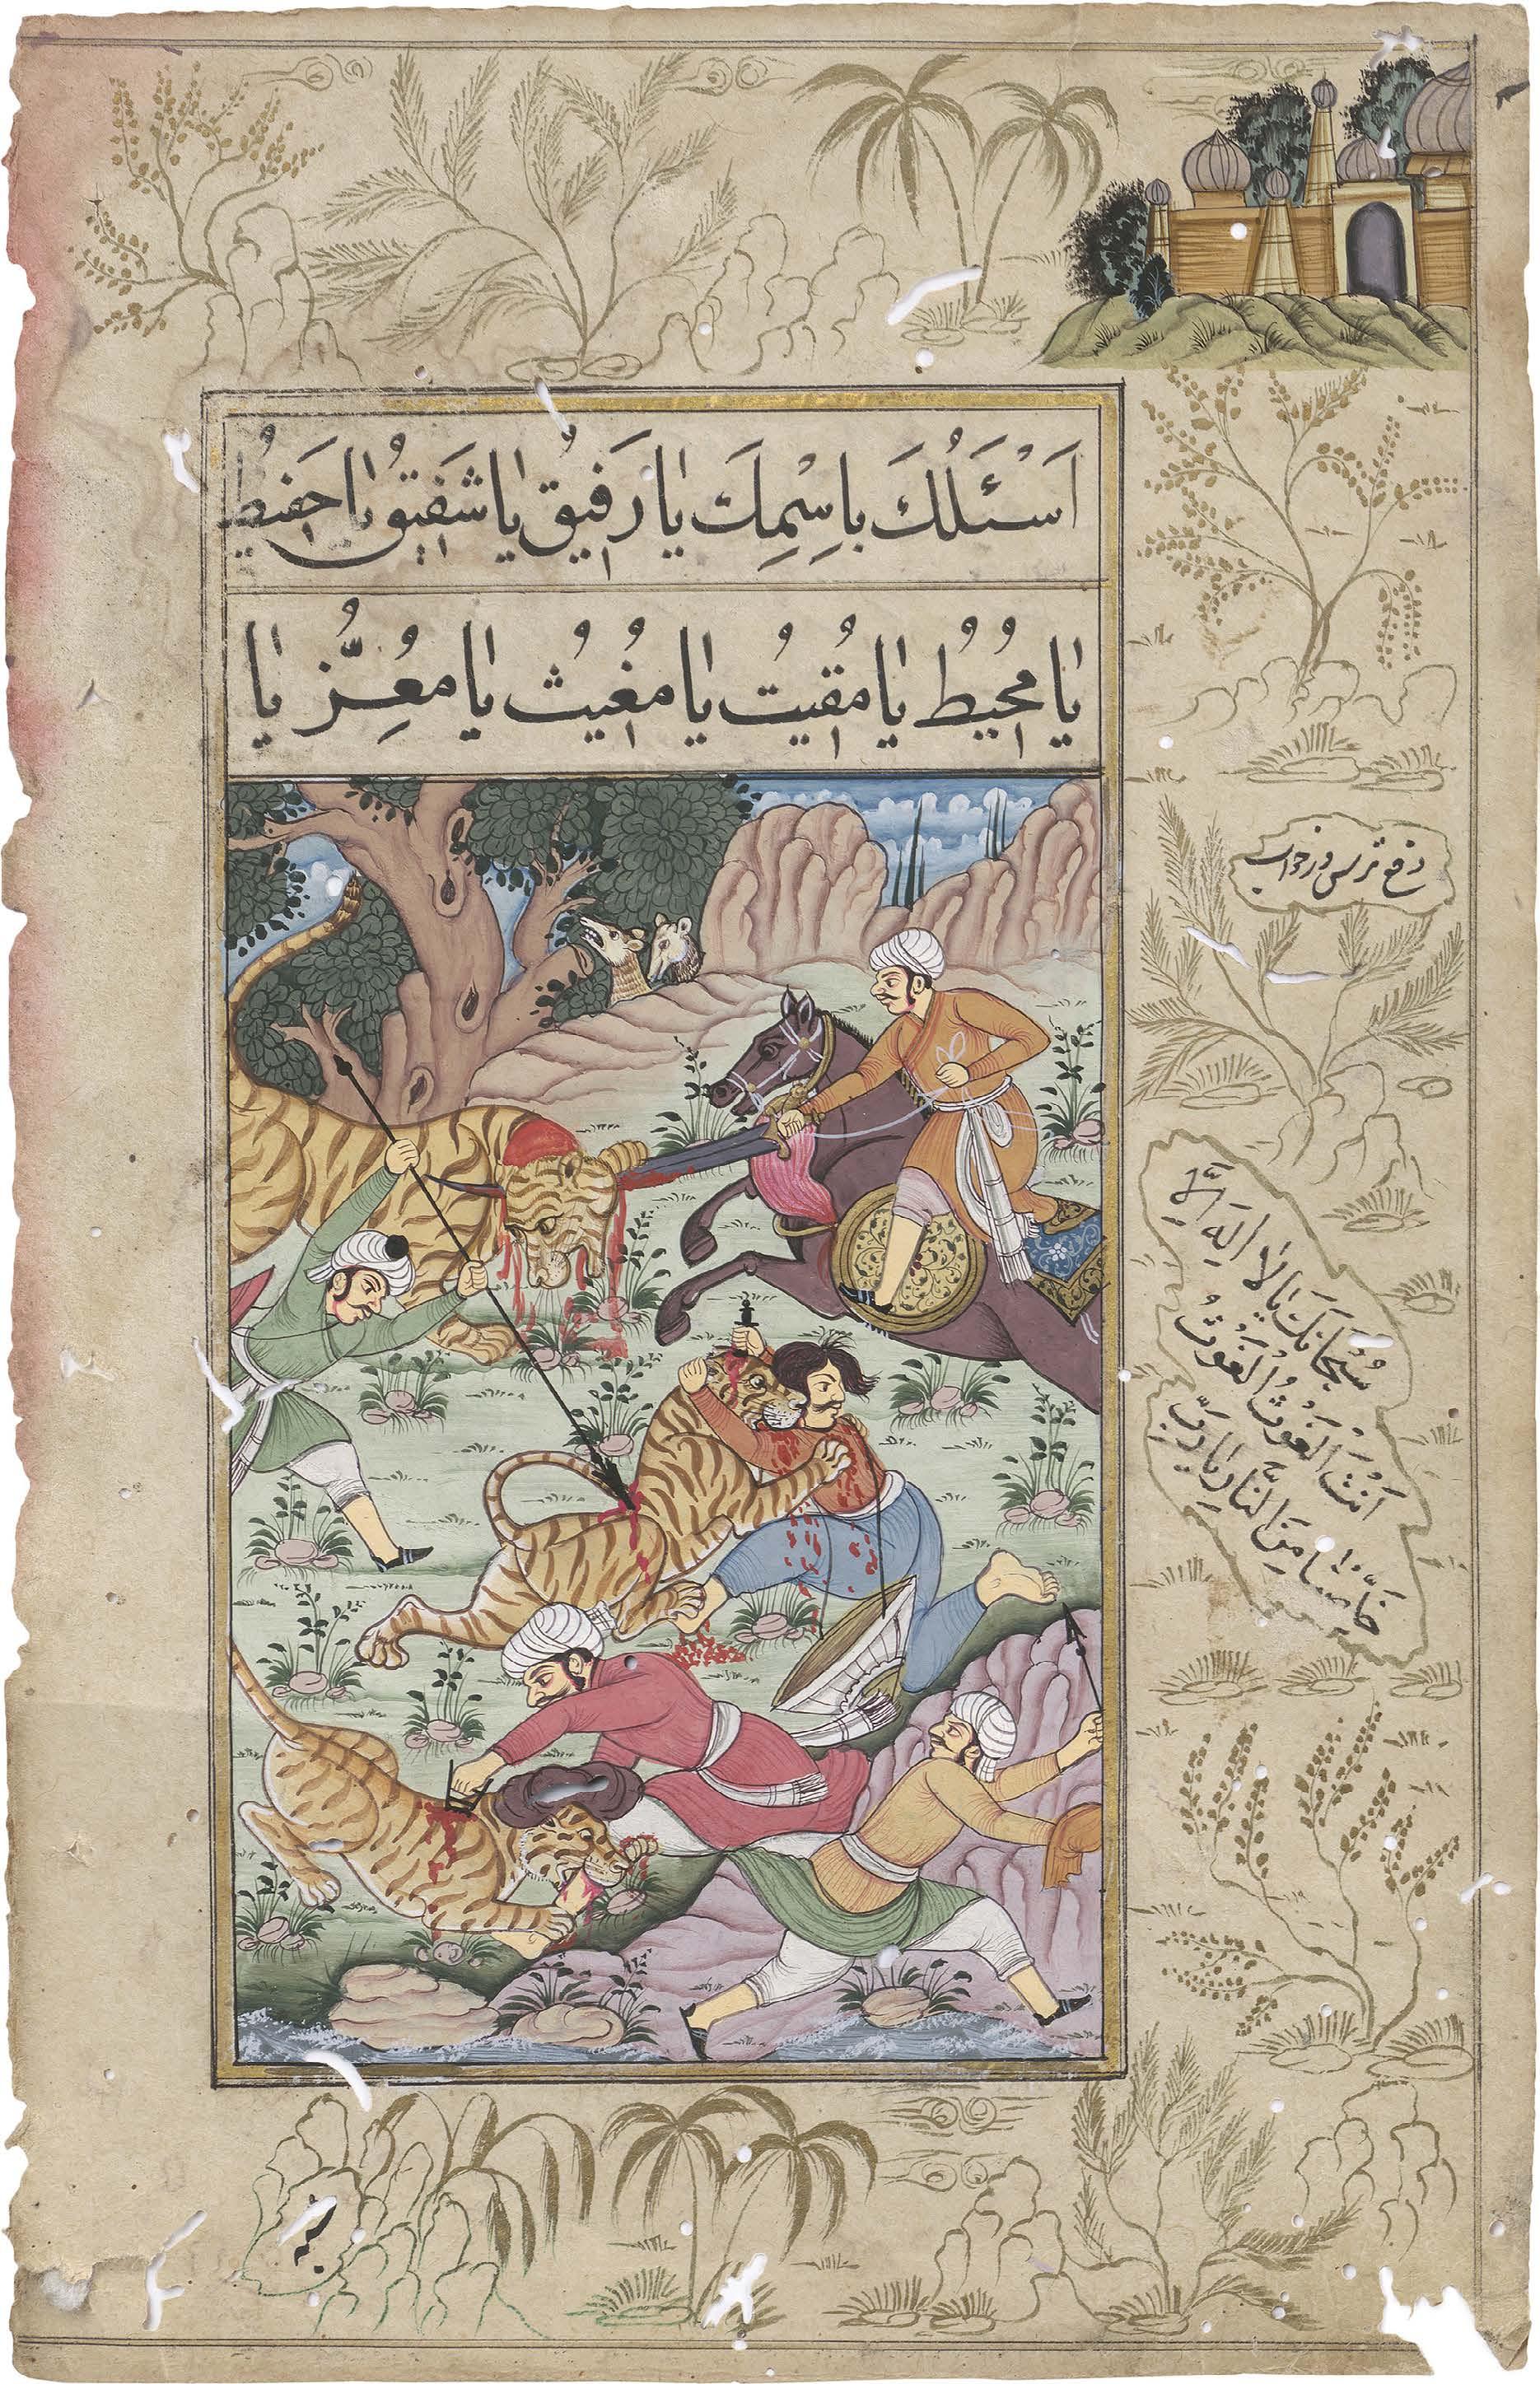 اَسْئَلُكَ بِاسْمِكَ يا رَفيقُ يا شَفيقُ يا حَفيظُ
يا مُحيطُ يا مُقيتُ يا مُغيثُ يا مُعِزُّ يا
دفع ترس در خواب
سُبْحانَكَ يا لا اِلهَ اِلّا
اَنْتَ الْغَوْثُ الْغَوْثُ
خَلِّصْنا مِنَ النّارِ يا رَبِّ